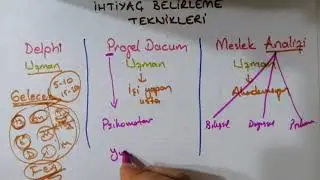 İHTİYAÇ BELİRLEME
TEKNİKLERİ
Delphi
Progel Dacum
Meslek Analizi
Uzman
Uzman
Uzman
Gelecek
5-10
15-20
İşi yapan
usta
Akademisyen
Psikomotor
Bilişsel
Duyuşsal